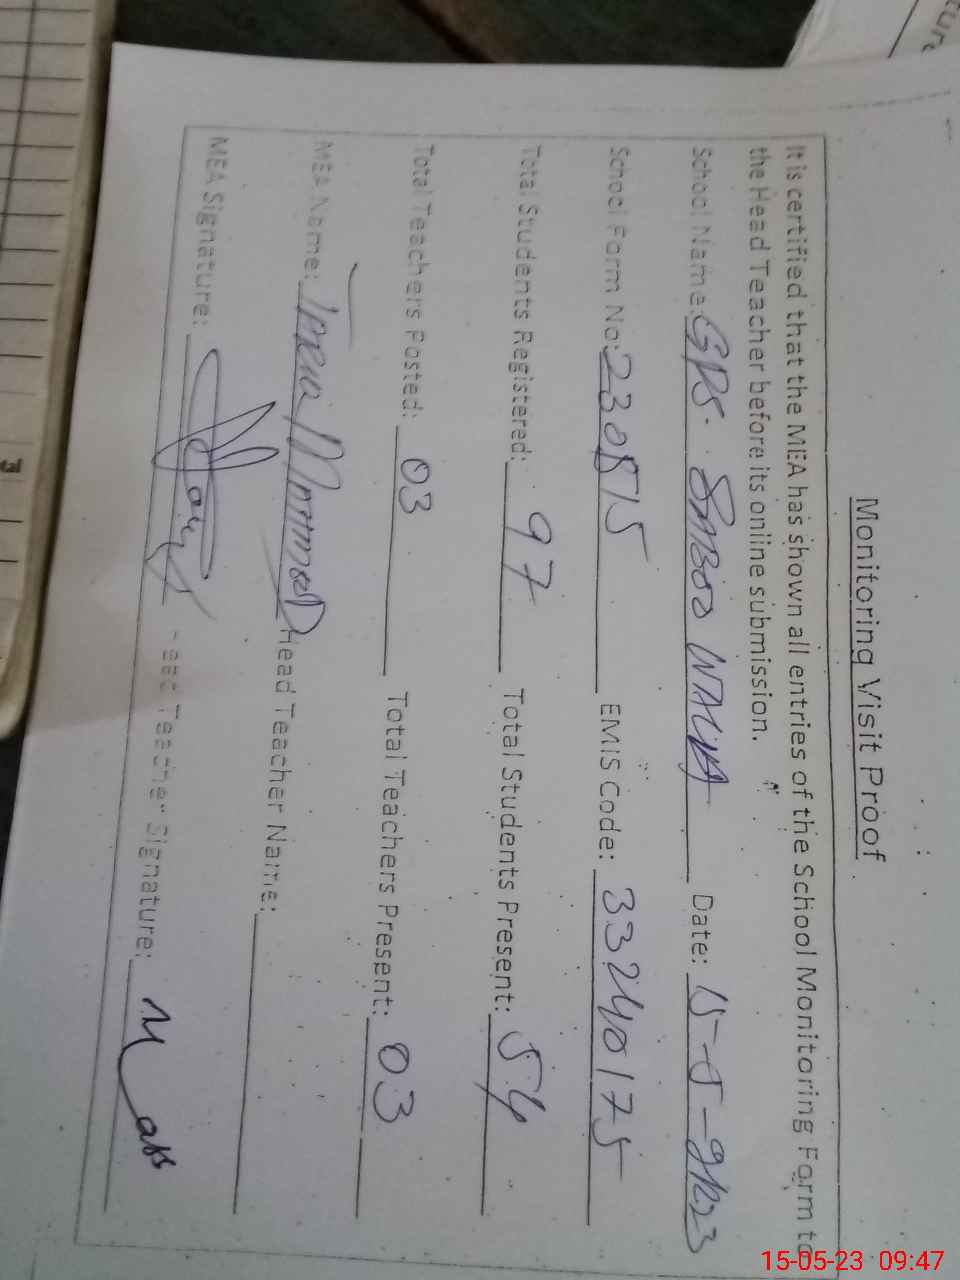 Monitoring Visit Proof
It is certified that the MEA has shown all entries of the School Monitoring Form to
the Head Teacher before its online submission.
School Name: GPS. Date: 15-5-2023
School Form No: 230815 EMIS Code: 33240175
Total Students Registered: 97 Total Students Present: 54
Total Teachers Posted: 03 Total Teachers Present: 03
MEA Name: Head Teacher Name:
MEA Signature: Head Teacher Signature:
15-05-23 09:47